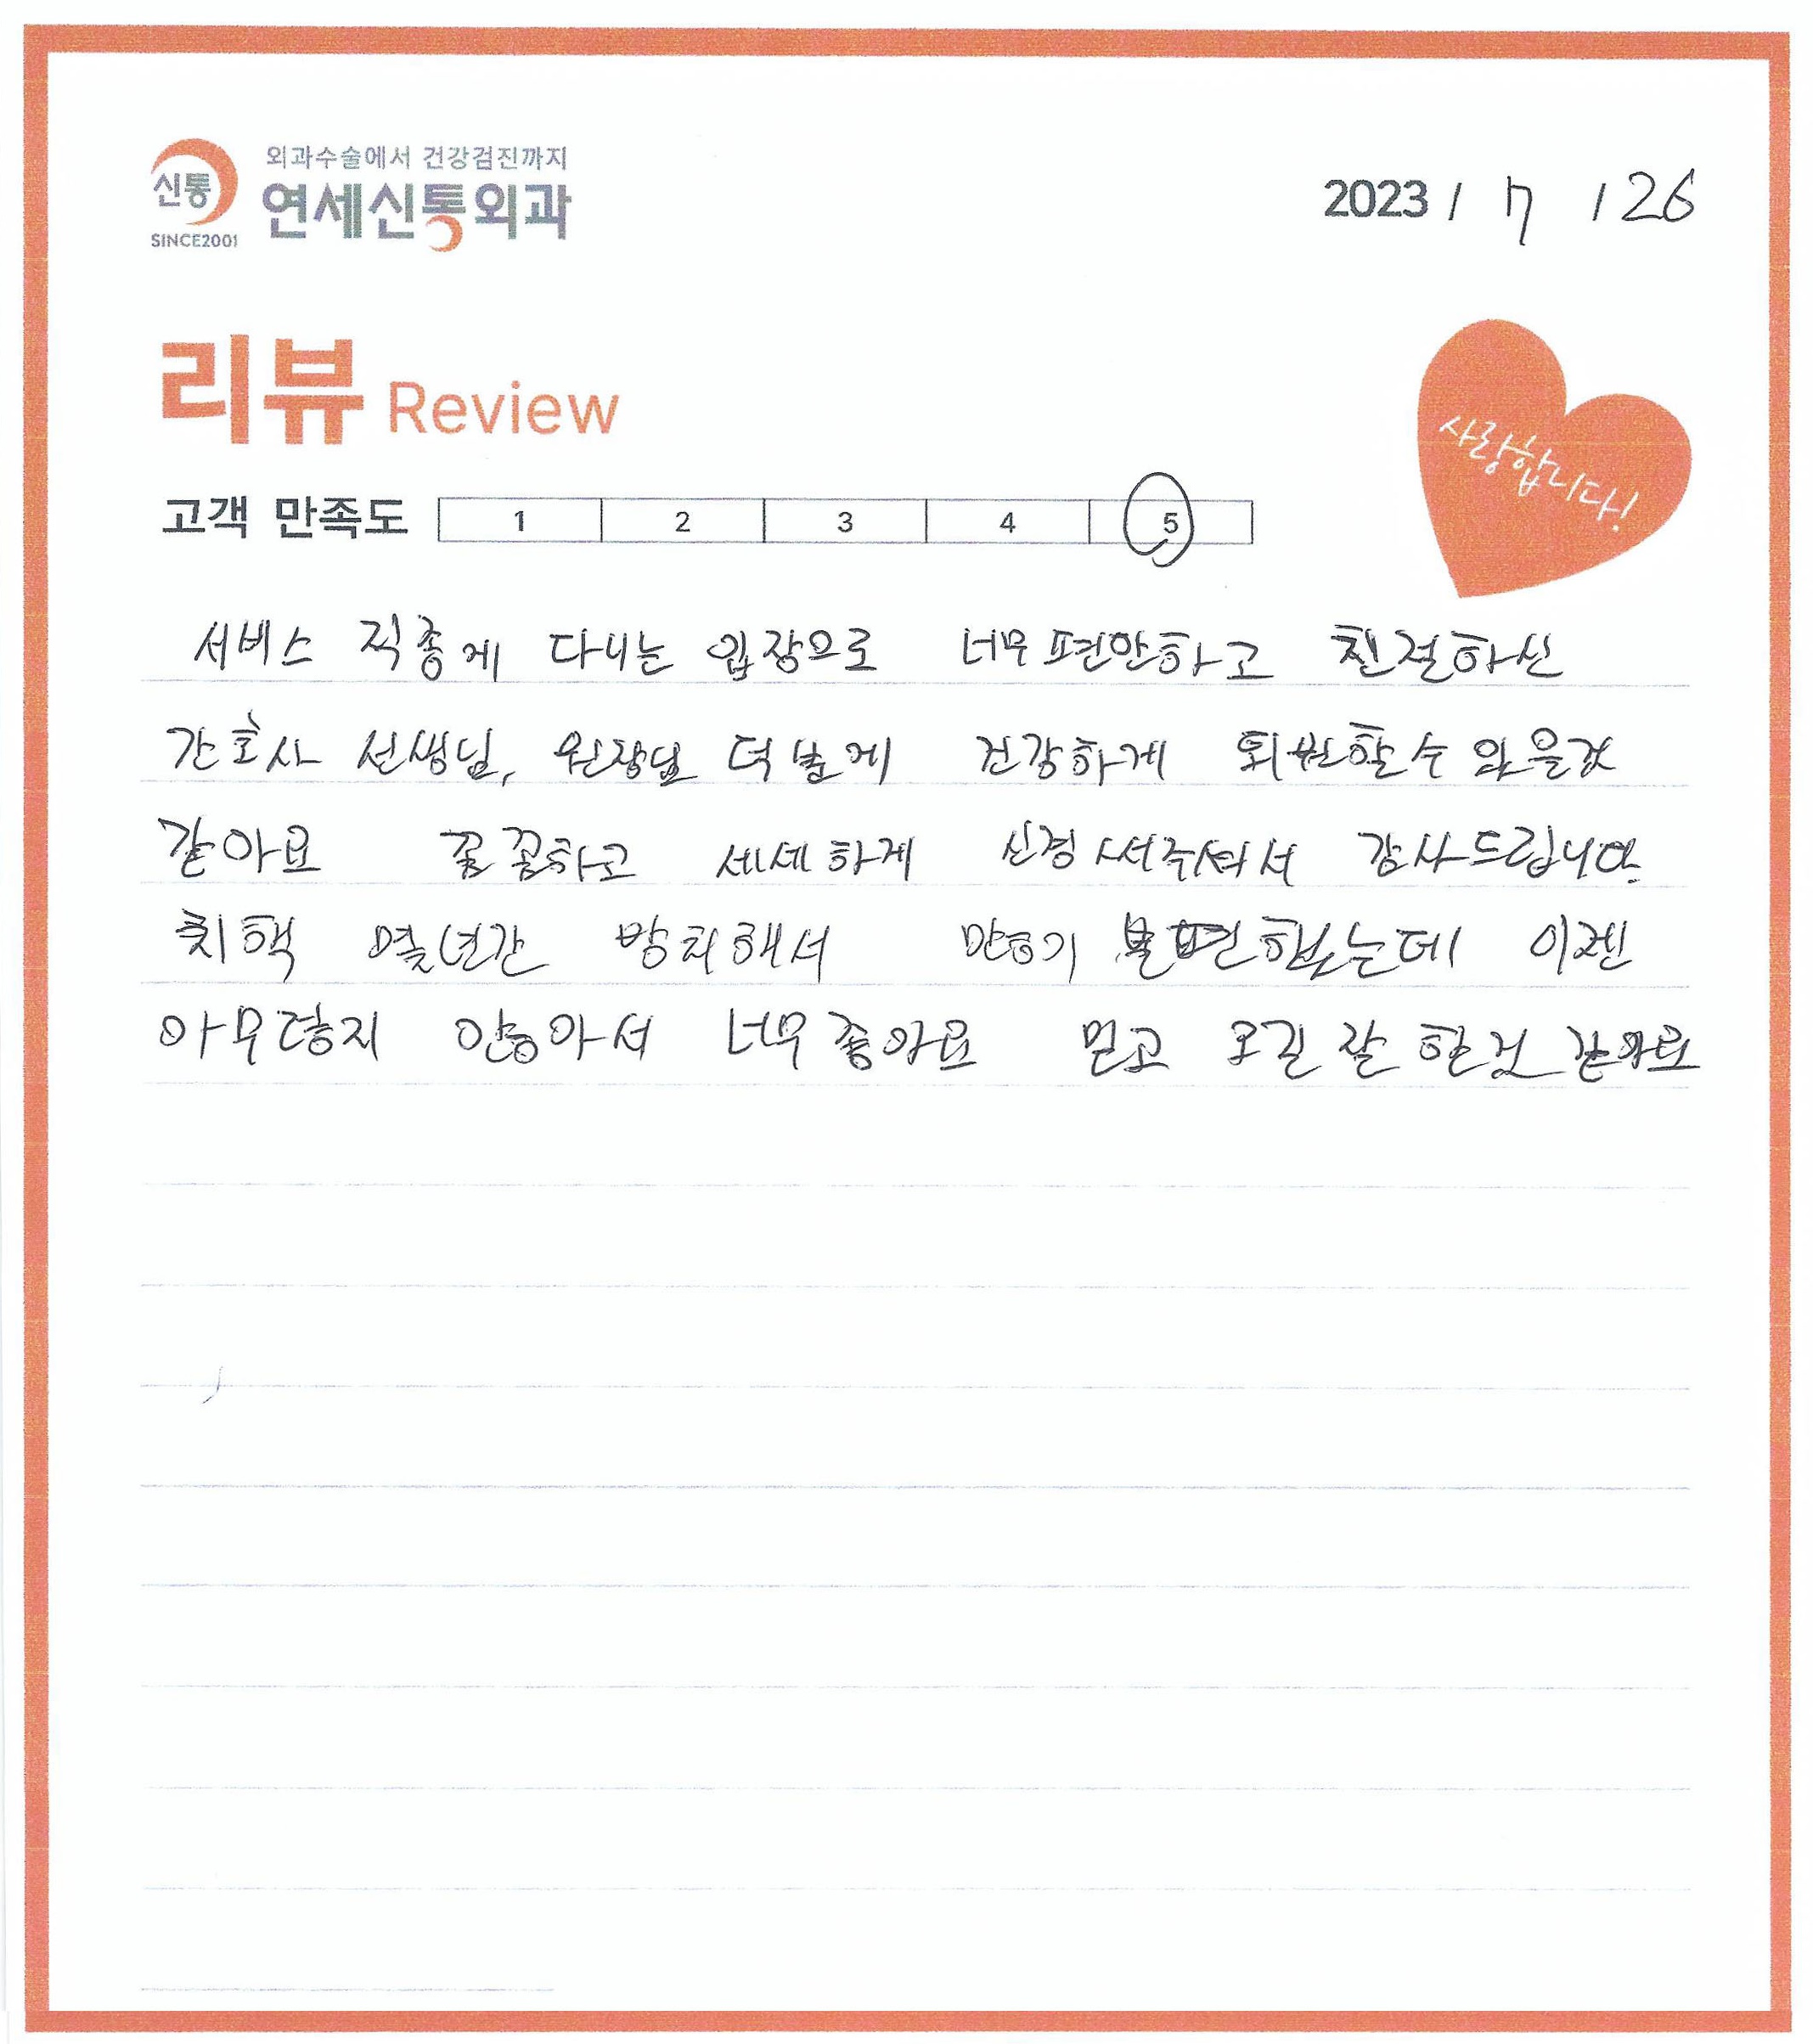 외과수술에서 건강검진까지
신통 연세신통외과
SINCE2001
2023 / 7 / 26
리뷰 Review
사랑합니다!
고객 만족도 1 2 3 4 5
서비스 직종에 다니는 입장으로 너무 편안하고 친절하신
간호사 선생님, 원장님 덕분에 건강하게 퇴원할 수 있을것
같아요 꼼꼼하고 세세하게 신경 써주셔서 감사드립니다.
치핵 열년간 방치해서 만히 불편했는데 이젠
아무렇지 안아서 너무 좋아요 믿고 오길 잘 한것 같아요